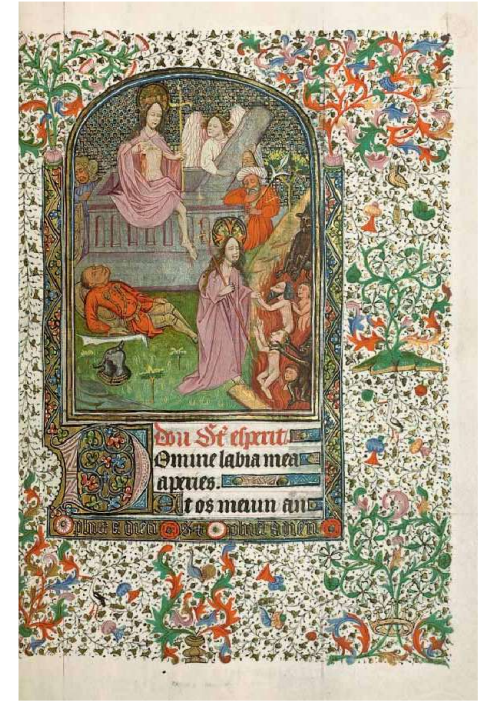 Dou St esperit.
DOmine labia mea
aperies.
Et os meum an